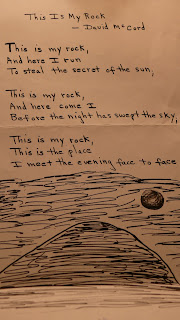 This Is My Rock
— David McCord
This is my rock,
And here I run
To steal the secret of the sun,
This is my rock,
And here come I
Before the night has swept the sky,
This is my rock,
This is the place
I meet the evening face to face